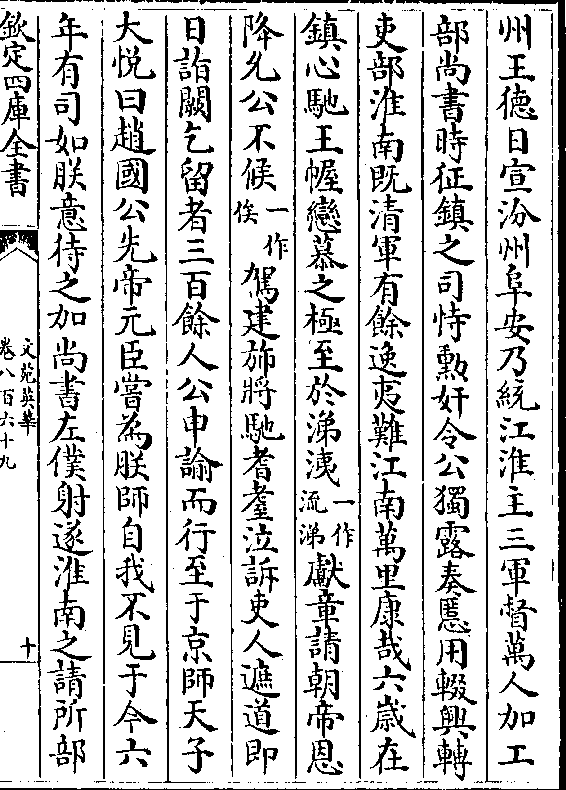 州王德日宣汾州阜安乃統江淮主三軍督萬人加工
部尚書時征鎮之司恃勲奸令公獨露奏慝用輟興轉
吏部淮南既清軍有餘逸夷難江南萬里康哉六歲在
鎮心馳王幄戀慕之極至於涕洟一作流涕獻章請朝帝恩
降允公不候一作俟駕建斾將馳耆耋泣訴吏人遮道即
日詣闕乞留者三百餘人公申諭而行至于京師天子
大悅曰趙國公先帝元臣嘗為朕師自我不見于今六
年有司如朕意待之加尚書左僕射遂淮南之請所部
欽定四庫全書
文苑英華
卷八百六十九
十